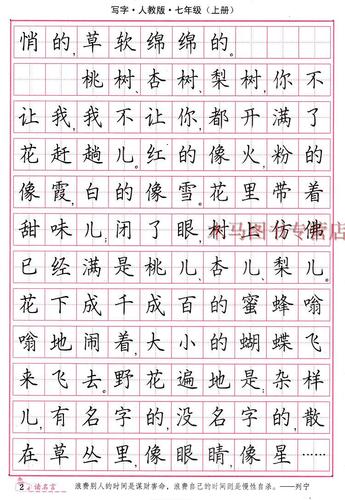 写字·人教版·七年级（上册）
悄的,草软绵绵的。
桃树、杏树、梨树,你不
让我,我不让你,都开满了
花赶趟儿。红的像火,粉的
像霞,白的像雪。花里带着
甜味儿;闭了眼,树上仿佛
已经满是桃儿、杏儿、梨儿。
花下成千成百的蜜蜂嗡
嗡地闹着,大小的蝴蝶飞
来飞去。野花遍地是:杂样
儿,有名字的,没名字的,散
在草丛里像眼睛,像星……
2 读名言 浪费别人的时间是谋财害命，浪费自己的时间则是慢性自杀。——列宁